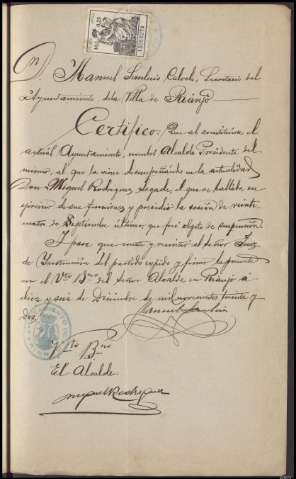 D. Manuel Sanluis Calvelo, Secretario del
Ayuntamiento de la Villa de Rianjo
Certifico: Que al constituirse el
actual Ayuntamiento, nombró Alcalde Presidente del
mismo, al que lo viene desempeñando en la actualidad
Don Miguel Rodriguez, el que se hallaba en
ejercicio de sus funciones y presidió la sesión de veinte
de Septiembre último, que fué objeto de
Y para que conste y remitir al Señor Juez
de Instrucción del partido expido y firmo la presente
con el Vto Bno del Señor Alcalde en Rianjo á
diez y seis de Diciembre de mil novecientos treinta y
dos.
Manuel Sanluis
Vto Bno
El Alcalde.
Miguel Rodriguez